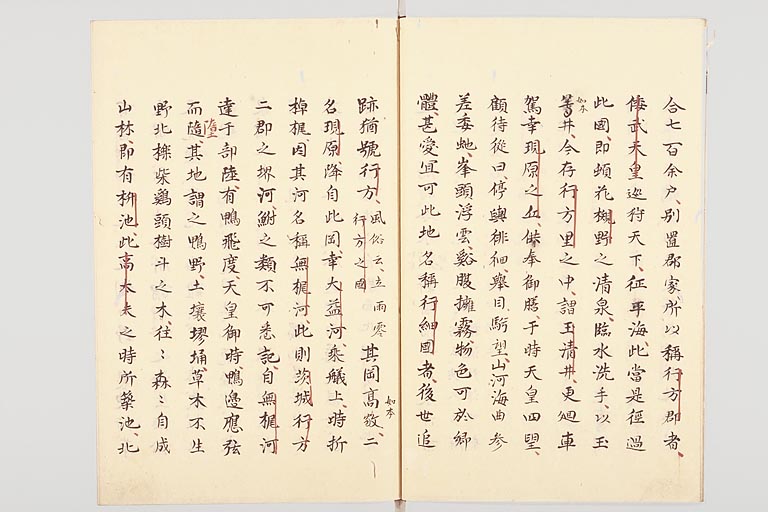 合七百余户、别置郡家、所以稱行方郡者、
倭武天皇巡狩天下、征平海此、當是徑過
此國、即頓花槻野之清泉、臨水洗手、以玉
落井、今存行方里之中、謂玉清井、更廻車
如本
駕幸現原之丘、供奉御膳、于時天皇四望、
顧待從曰、停輿徘徊、舉目騁望、山河海曲参
差委虵、峯頭浮雲、谿腹擁霧、物色可於郷
體、甚愛、宜可此地名稱行細國者、後世追
跡猶號行方、風俗云、立雨零
行方之國
其岡高敞、二
如本
名現原、降自此岡、幸大益河、乘艤上、時折
棹梶、因其河名稱無梶河、此則茨城行方
二郡之堺、河鮒之類不可悉記、自無梶河
達于部陸、有鴨飛度、天皇御時、鴨邊應弦
而隨其地謂之鴨野、土壤塉埆、草木不生
墮
野北櫟柴鷄頭樹斗之木、往〻森〻自成
山林、即有枡池、此高本夫之時所築池、北